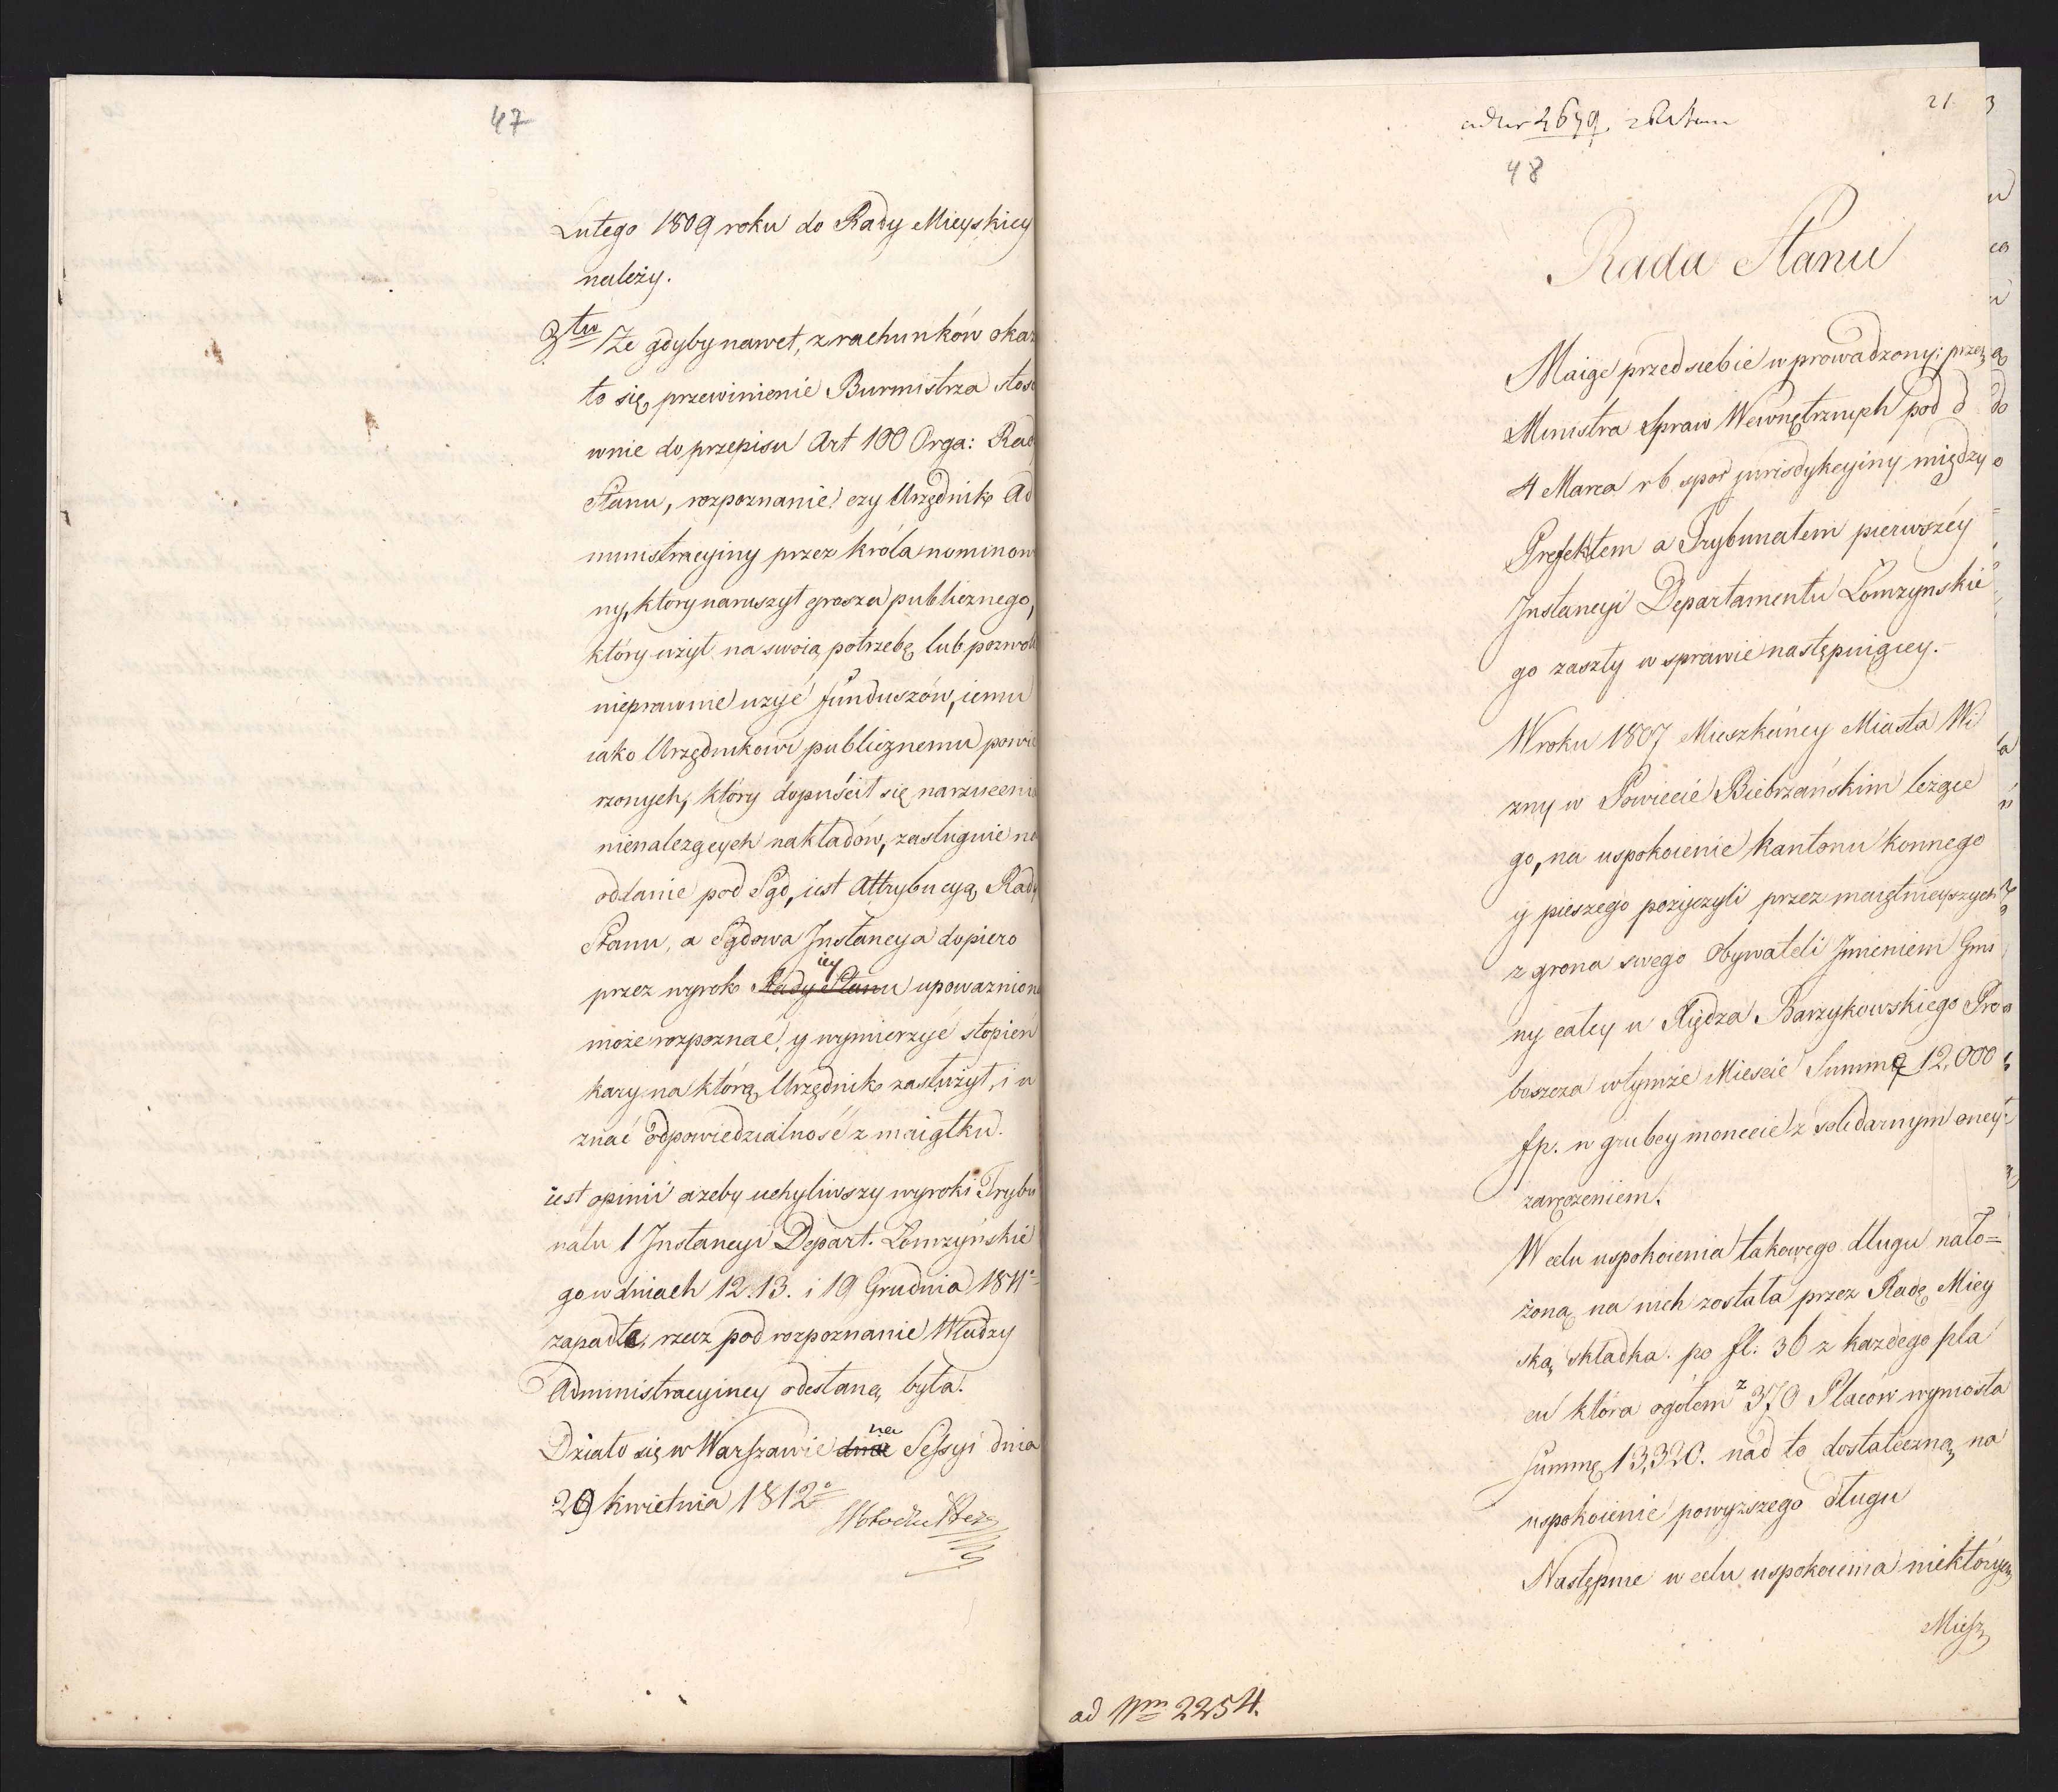 47
Lutego 1809 roku do Rady Mieyskiey
należy.
3tio Że gdyby nawet, z rachunków okaza
to się przewinienie Burmistrza stoso
wnie do przepisu Art 100 Orga: Rady
Stanu, rozpoznanie czy Urzędnik Ad
ministracyiny przez króla nominowa
ny, ktory naruszył grosza publicznego,
który użył na swoią potrzebę lub pozwolił
nieprawnie użyć funduszów, iemu
iako Urzędnikowi publicznemu powie
rzonych, który dopuścił się narzucenia
nienależących nakładów, zasługuie na
oddanie pod Sąd, iest Attrybucyą Rady
Stanu, a Sądowa Instancya dopiero
iey
przez wyrok Rady Stanu upoważniona
może rozpoznać y wymierzyć stopień
kary na którą Urzędnik zasłużył, i u
znać odpowiedzialność z maiątku.
iest opinii ażeby uchyliwszy wyroki Trybu
nału 1 Instancyi Depart. Łomżyńskie
go w dniach 12. 13. i 19 Grudnia 1811o
zapadłe, rzecz pod rozpoznanie Władzy
Administracyiney odesłaną była.
na
Działo się w Warszawie dnia Sessyi dnia
29 kwietnia 1812o
21
ad Nr 2679.
48
Rada Stanu
Maiąc przed siebie wprowadzony; przez
Ministra Spraw Wewnętrznych pod d
4 Marca rb spor jurisdykcyiny między
Prefektem a Trybunałem pierwszéy
Instancyi Departamentu Łomżynskie
go zaszły w sprawie następuiącey.-
W roku 1807 Mieszkańcy Miasta Wi
zny w Powiecie Biebrzańskim leżące
go, na uspokoienie kantonu konnego
y pieszego pożyczyli przez maiętnieyszych
z grona swego Obywateli Jmieniem Gmi
ny całey u Xiędza Barzykowskiego Pro
boszcza w tymże Mieście Summę 12,000
fp. w grubey monecie z solidarnym oney
zaręczeniem.
W celu uspokoienia takowego długu nało=
żoną na nich została przez Radę Miey
ską składka. po fl: 36 z każdego pla
z
cu która ogółem 370 Placów wynosła
Summę 13,320. nad to dostateczną na
uspokoienie powyższego długu
Następnie w celu uspokoienia niektórych
Miesz
ad Nrm 2254.